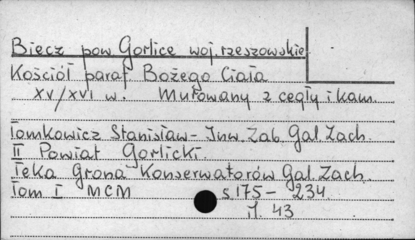 Biecz pow Gorlice woj. rzeszowskie
Kościół paraf Bożego Ciała
XV/XVI w. Murowany z cegły i kam.
Tomkowicz Stanisław - Inw. Zab. Gal Zach.
II Powiat Gorlicki.
Teka Grona Konserwatorów Gal. Zach.
Tom I MCM s. 175 - 234.
il. 43